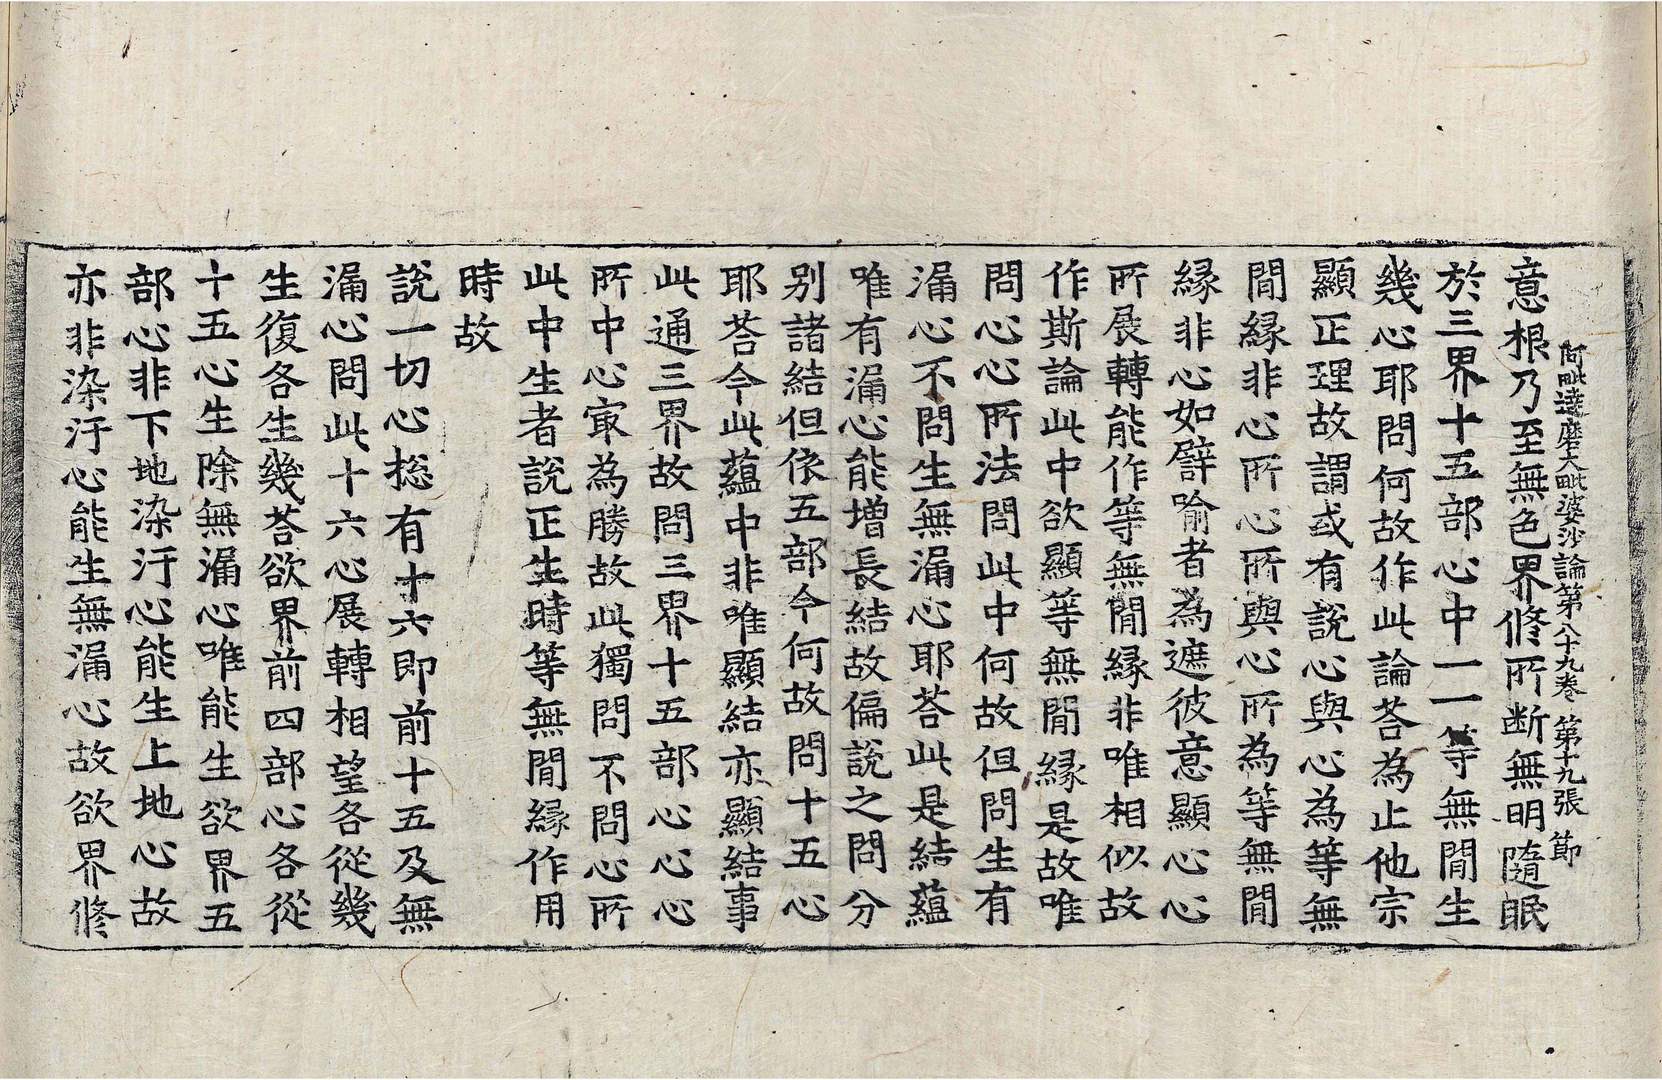 阿毗達磨大毗婆沙論第八十九卷 第十九張 節
意根乃至無色界修所断無明隨眠
於三界十五部心中一一等無閒生
幾心耶問何故作此論荅為止他宗
顯正理故謂或有說心與心為等無
閒緣非心所心所與心所為等無閒
緣非心如譬喻者為遮彼意顯心心
所展轉能作等無閒緣非唯相似故
作斯論此中欲顯等無閒緣是故唯
問心心所法問此中何故但問生有
漏心不問生無漏心耶荅此是結蘊
唯有漏心能增長結故偏說之問分
別諸結但依五部今何故問十五心
耶荅今此蘊中非唯顯結亦顯結事
此通三界故問三界十五部心心
所中心㝡為勝故此獨問不問心所
此中生者說正生時等無閒緣作用
時故
說一切心揔有十六即前十五及無
漏心問此十六心展轉相望各從幾
生復各生幾荅欲界前四部心各從
十五心生除無漏心唯能生欲界五
部心非下地染汙心能生上地心故
亦非染汙心能生無漏心故欲界修